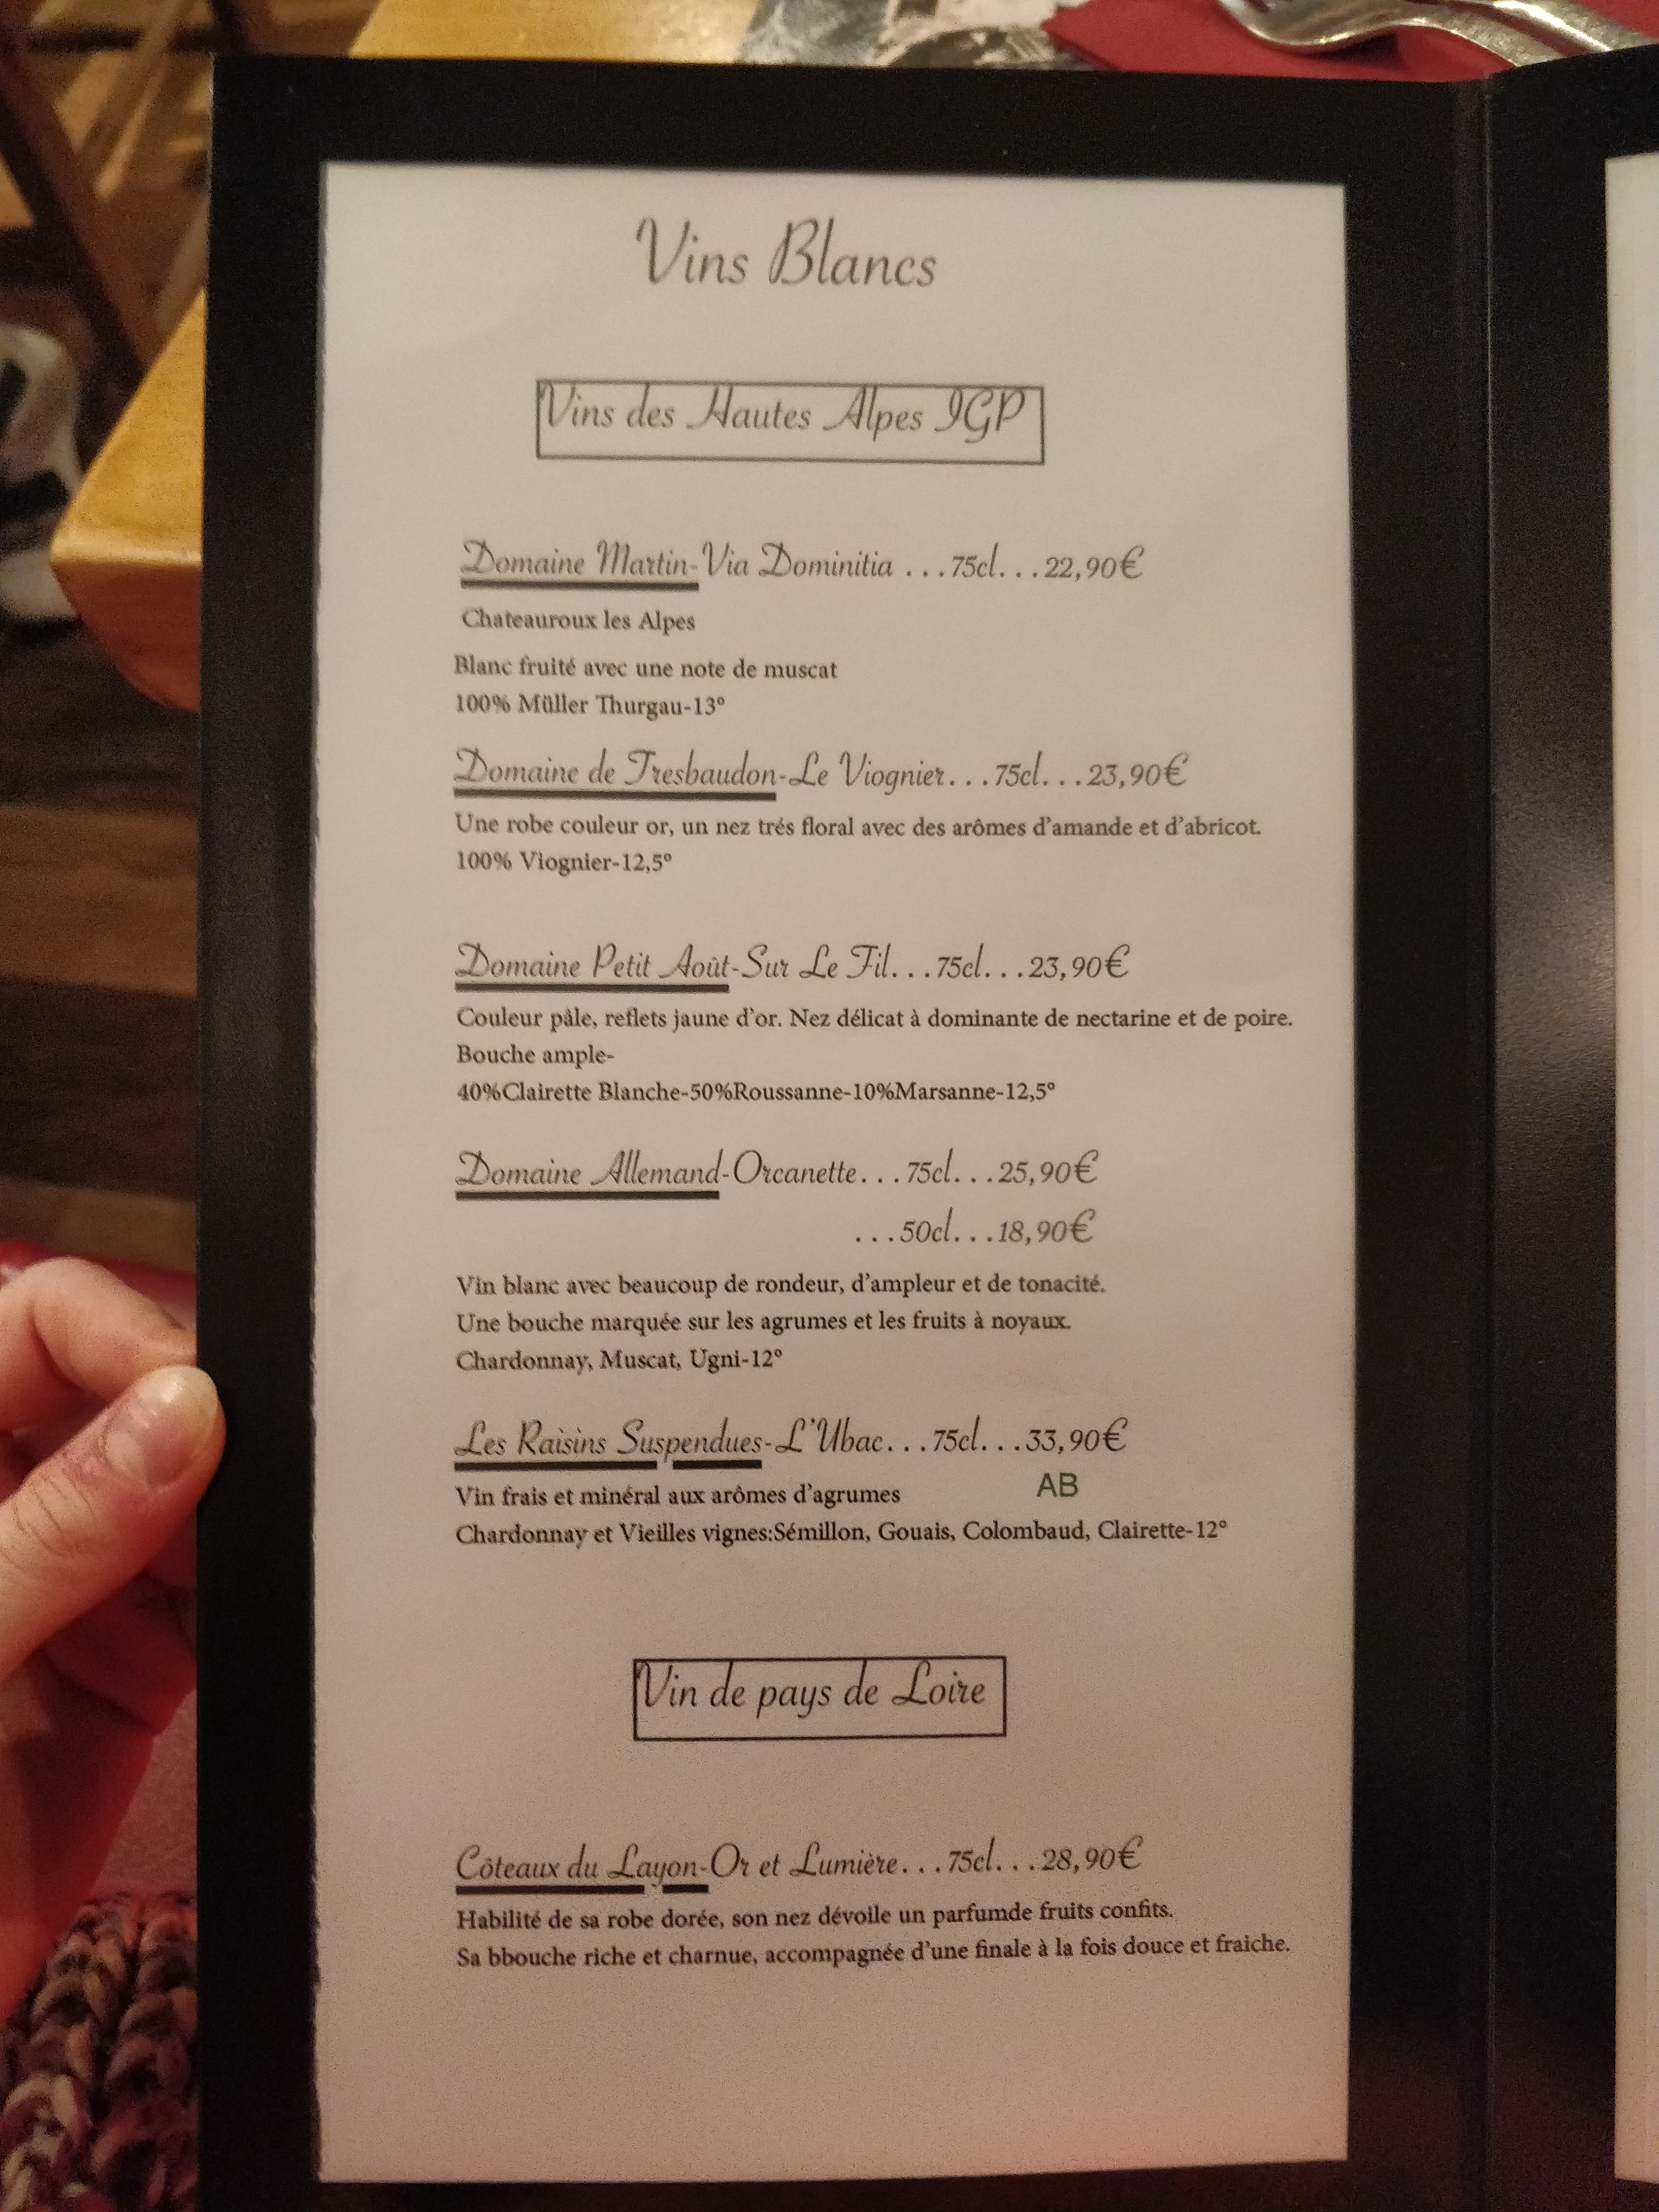 Vins Blancs
Vins des Hautes Alpes IGP
Domaine Martin-Via Dominitia ...75cl...22,90€
Chateauroux les Alpes
Blanc fruité avec une note de muscat
100% Müller Thurgau-13°
Domaine de Tresbaudon-Le Viognier...75cl...23,90€
Une robe couleur or, un nez trés floral avec des arômes d'amande et d'abricot.
100% Viognier-12,5°
Domaine Petit Août-Sur Le Fil...75cl...23,90€
Couleur pâle, reflets jaune d'or. Nez délicat à dominante de nectarine et de poire.
Bouche ample-
40%Clairette Blanche-50%Roussanne-10%Marsanne-12,5°
Domaine Allemand-Orcanette...75cl...25,90€
...50cl...18,90€
Vin blanc avec beaucoup de rondeur, d'ampleur et de tonacité.
Une bouche marquée sur les agrumes et les fruits à noyaux.
Chardonnay, Muscat, Ugni-12°
Les Raisins Suspendues-L'Ubac...75cl...33,90€
Vin frais et minéral aux arômes d'agrumes AB
Chardonnay et Vieilles vignes:Sémillon, Gouais, Colombaud, Clairette-12°
Vin de pays de Loire
Côteaux du Layon-Or et Lumière...75cl...28,90€
Habilité de sa robe dorée, son nez dévoile un parfumde fruits confits.
Sa bbouche riche et charnue, accompagnée d'une finale à la fois douce et fraiche.